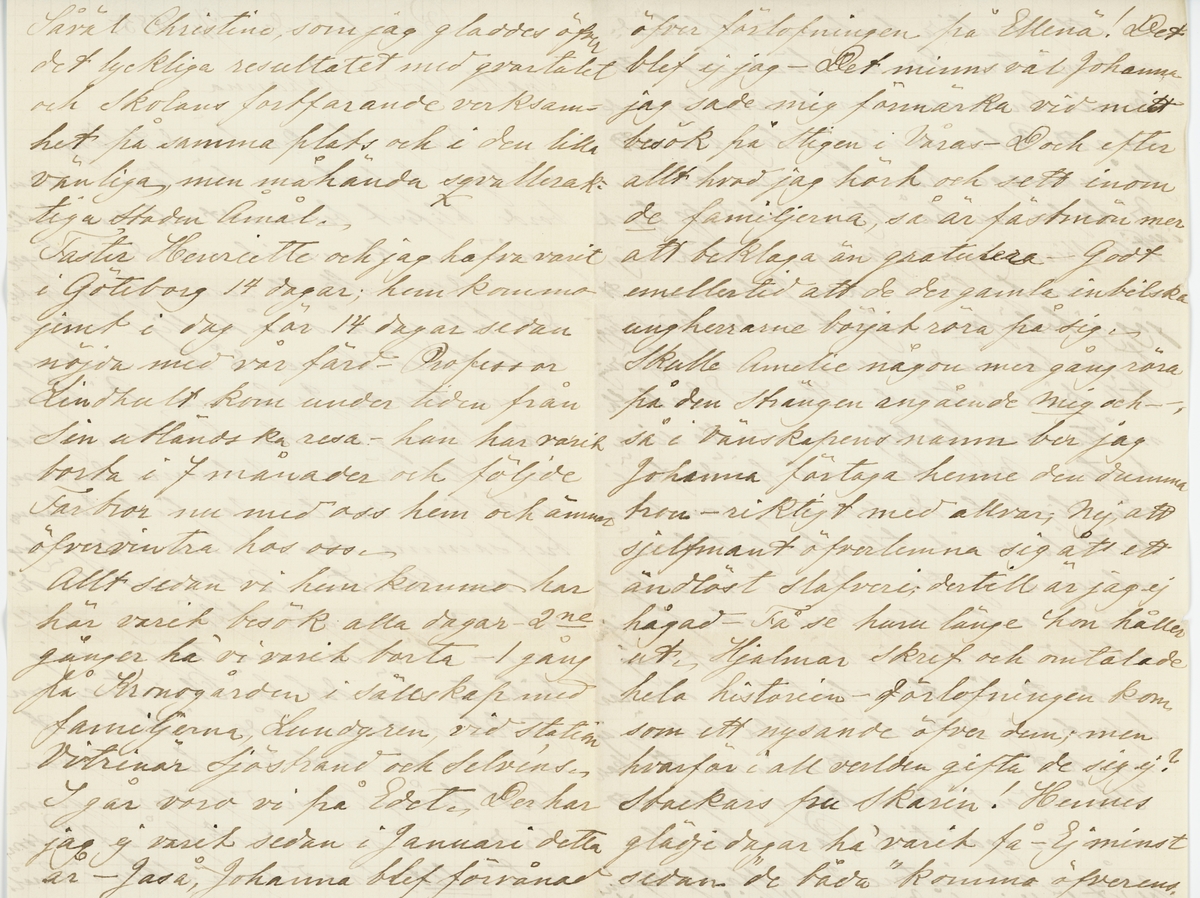 Såväl Christine, som jag gladdes öfver
det lyckliga resultatet med qvartalet
och Skolans fortfarande verksam-
het på samma plats och i den lilla
vänliga, men måhända sqvallerak-
tiga staden Åmål.
Faster Henriette och jag hafva varit
i Göteborg 14 dagar; hem kommo
jemt i dag för 14 dagar sedan
nöjda med vår färd - Professor
Lindhult kom under tiden från
Sin utländska resa - han har varit
borta i 7 månader och följde
Farbror nu med oss hem och ämnar
öfvervintra hos oss.
Allt sedan vi hem kommo har
här varit besök alla dagar - 2ne
gånger ha vi varit borta - 1 gång
på Kronogården i sällskap med
familjerna, Lundgren, vid station
Vetrinär Sjöstrand och Selvéns.
I går voro vi på Edet. Der har
jag ej varit sedan i Januari detta
år - Jaså, Johanna blef förvånad
öfver förlofningen på Ellenä! Det
blef ej jag - Det minns väl Johanna
jag sade mig förmärka vid mitt
besök på Stigen i Våras - Doch efter
allt hvad jag hört och sett inom
de familjerna, så är fästmön mer
att beklaga än gratulera - Godt
emellertid att de der gamla inbilska
ungherrarne börjat röra på sig.
Skulle Amelie någon mer gång röra
på den strängen angående mig och -,
så i vänskapens namn ber jag
Johanna förtaga henne den dumma
tron - riktigt med allvar, Nej att
sjelfmant öfverlemna sig åt ett
ändlöst slafveri; dertill är jag ej
hågad - Få se huru länge hon håller
ut. Hjalmar skref och omtalade
hela historien - Förlofningen kom,
som ett nysande öfver dem; men
hvarför i all verlden gifta de sig ej?
Stackars fru Skarin! Hennes
glädje dagar ha varit få - Ej minst
sedan "de båda" kommo öfverens.